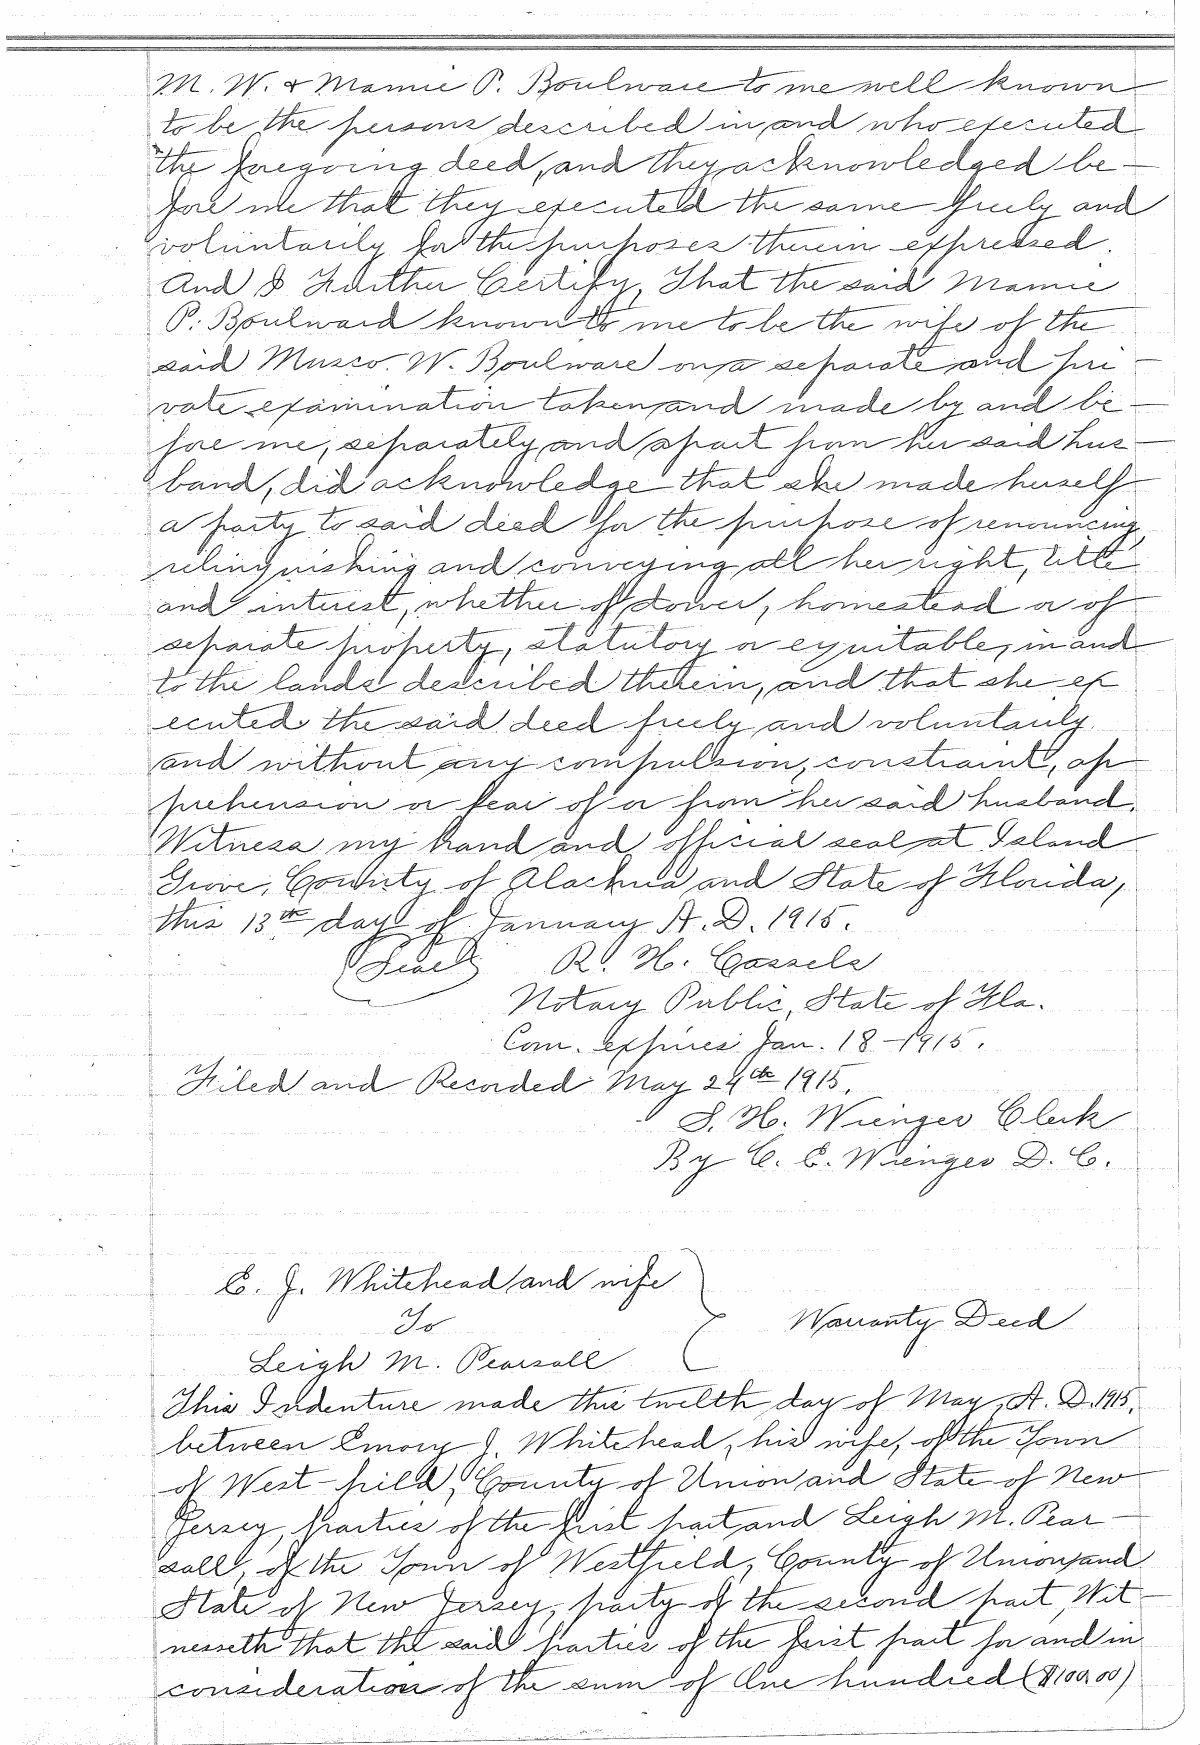 M. W. & Mamie P. Boulware to me well known
to be the persons described in and who executed
the foregoing deed, and they acknowledged be-
fore me that they executed the same freely and
voluntarily for the purposes therein expressed.
And I Further Certify, That the said Mamie
P. Boulward known to me to be the wife of the
said Musco. W. Boulware on a separate and pri-
vate examination taken and made by and be-
fore me, separately and apart from her said hus-
band, did acknowledge that she made herself
a party to said deed for the purpose of renouncing,
relinquishing and conveying all her right, title
and interest, whether of dower, homestead or of
separate property, statutory or equitable, in and
to the lands described therein, and that she ex
ecuted the said deed freely and voluntarily
and without any compulsion, constraint, ap
prehension or fear of or from her said husband.
Witness my hand and official seal at Island
Grove, County of Alachua and State of Florida,
this 13th day of January A. D. 1915.
(Seal) R. H. Cassels
Notary Public, State of Fla.
Com. expires Jan. 18-1915.
Filed and Recorded May 24th 1915.
S. H. Wienges Clerk
By C. E. Wienges D. C.
E. J. Whitehead and wife
To
Warranty Deed
Leigh M. Pearsall
This Indenture made this twelth day of May, A. D. 1915,
between Emory J. Whitehead, his wife, of the Town
of West-field, County of Union and State of New
Jersey, parties of the first part, and Leigh M. Pear-
sall, of the Town of Westfield, County of Union, and
State of New Jersey, party of the second part, Wit-
nesseth that the said parties of the first part for and in
consideration of the sum of One hundred ($100.00)